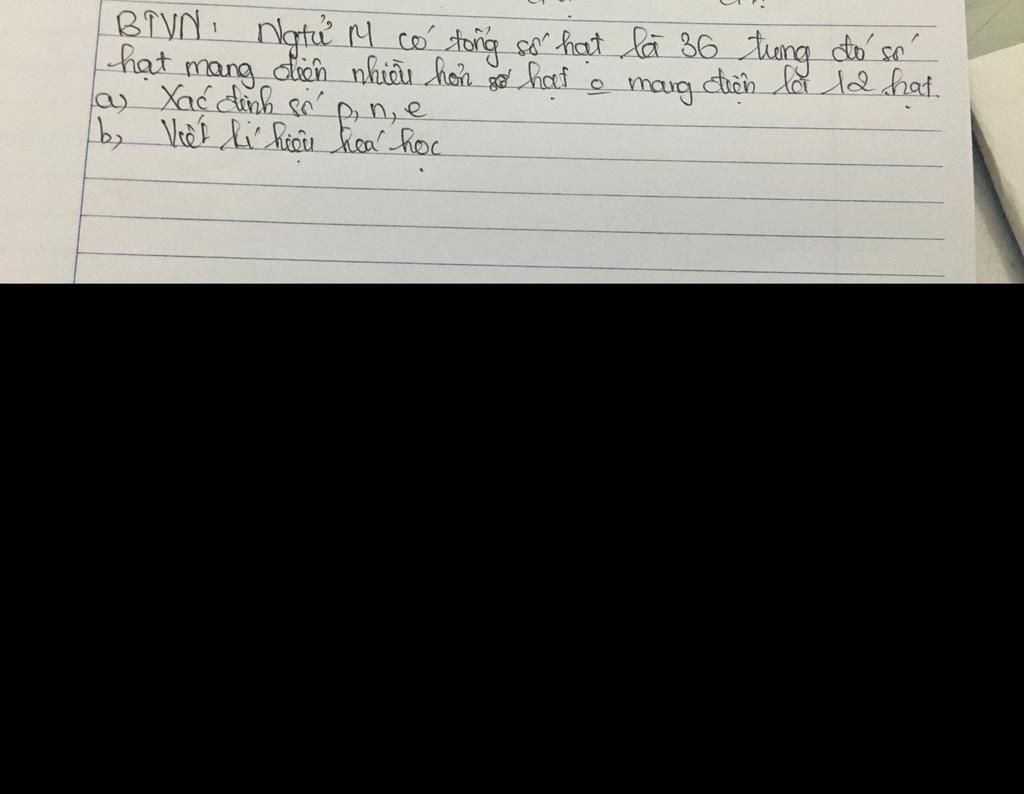 BTVN: Ngtử M có tổng số hạt là 36 trong đó số
hạt mang điện nhiều hơn hạt o mang điện là 12 hạt.
a) Xác định số p, n, e
b) Viết kí hiệu hoá học